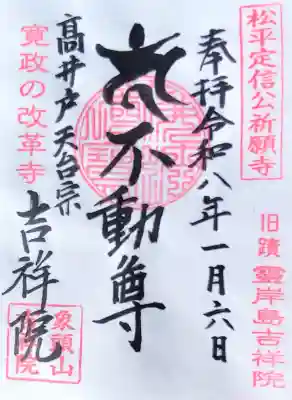 松平定信公祈願寺
旧蹟 霊岸島吉祥院
奉拝 令和八年一月六日
不動尊
高井戸 天台宗
吉祥院
寛政の改革寺
象頭山